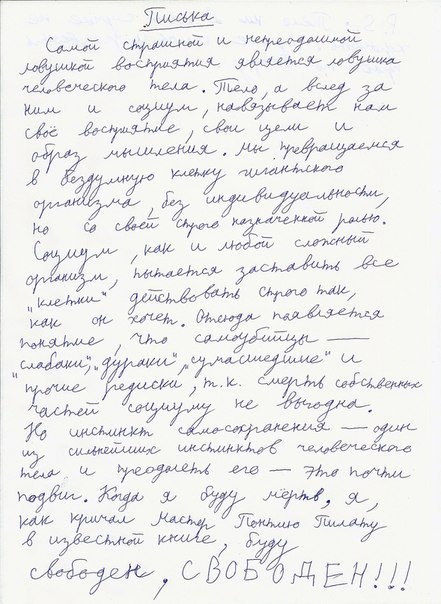 Писька
Самой страшной и непреодолимой
ловушкой восприятия является ловушка
человеческого тела. Тело, а вслед за
ним и социум, навязывает нам
своё восприятие, свои цели и
образ мышления. Мы превращаемся
в бездумную клетку гигантского
организма, без индивидуальности,
но со своей строго назначенной ролью.
Социум, как и любой сложный
организм, пытается заставить все
"клетки" действовать строго так,
как он хочет. Отсюда появляется
понятие, что самоубийцы —
"слабаки", "дураки", "сумасшедшие" и
прочие редиски, т.к. смерть собственных
частей социуму не выгодна.
Но инстинкт самосохранения — один
из сильнейших инстинктов человеческого
тела и преодолеть его — это почти
подвиг. Когда я буду мёртв, я,
как кричал Мастер Понтию Пилату
в известной книге, буду
свободен, СВОБОДЕН!!!